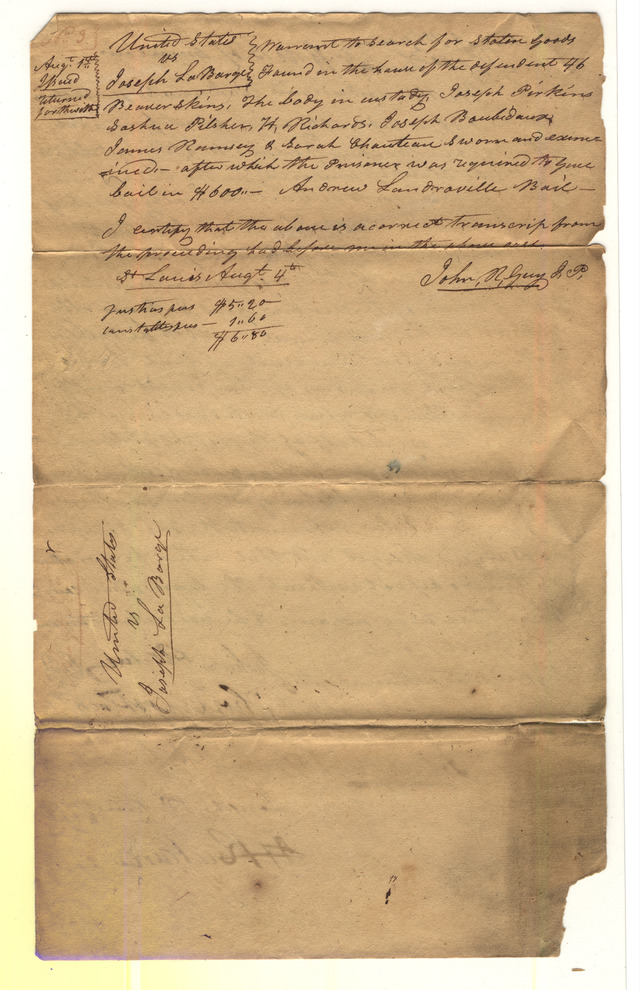 Augt. 1st
Issued
returned
forthwith
United States
vs
Joseph La Barge
Warrant to search for stolen goods
Found in the house of the defendent 46
Beaver skins. The body in custody, Joseph Pirkins
Joshua Pilsher, H, Richards, Joseph Roubideaux
James Ramsey & Sarah Chauteau Sworn and exame
ined - after which the Prisoner was required to give
bail in $600.. - Andrew Landraville Bail -
I certify that the above is a correct transcrip from
the proceeding had before me in the above case.
St Louis Augt. 4th
John, R, Guy J. P.
Justices $5..20
1..60
$6..80
United States
vs
Joseph La Barge